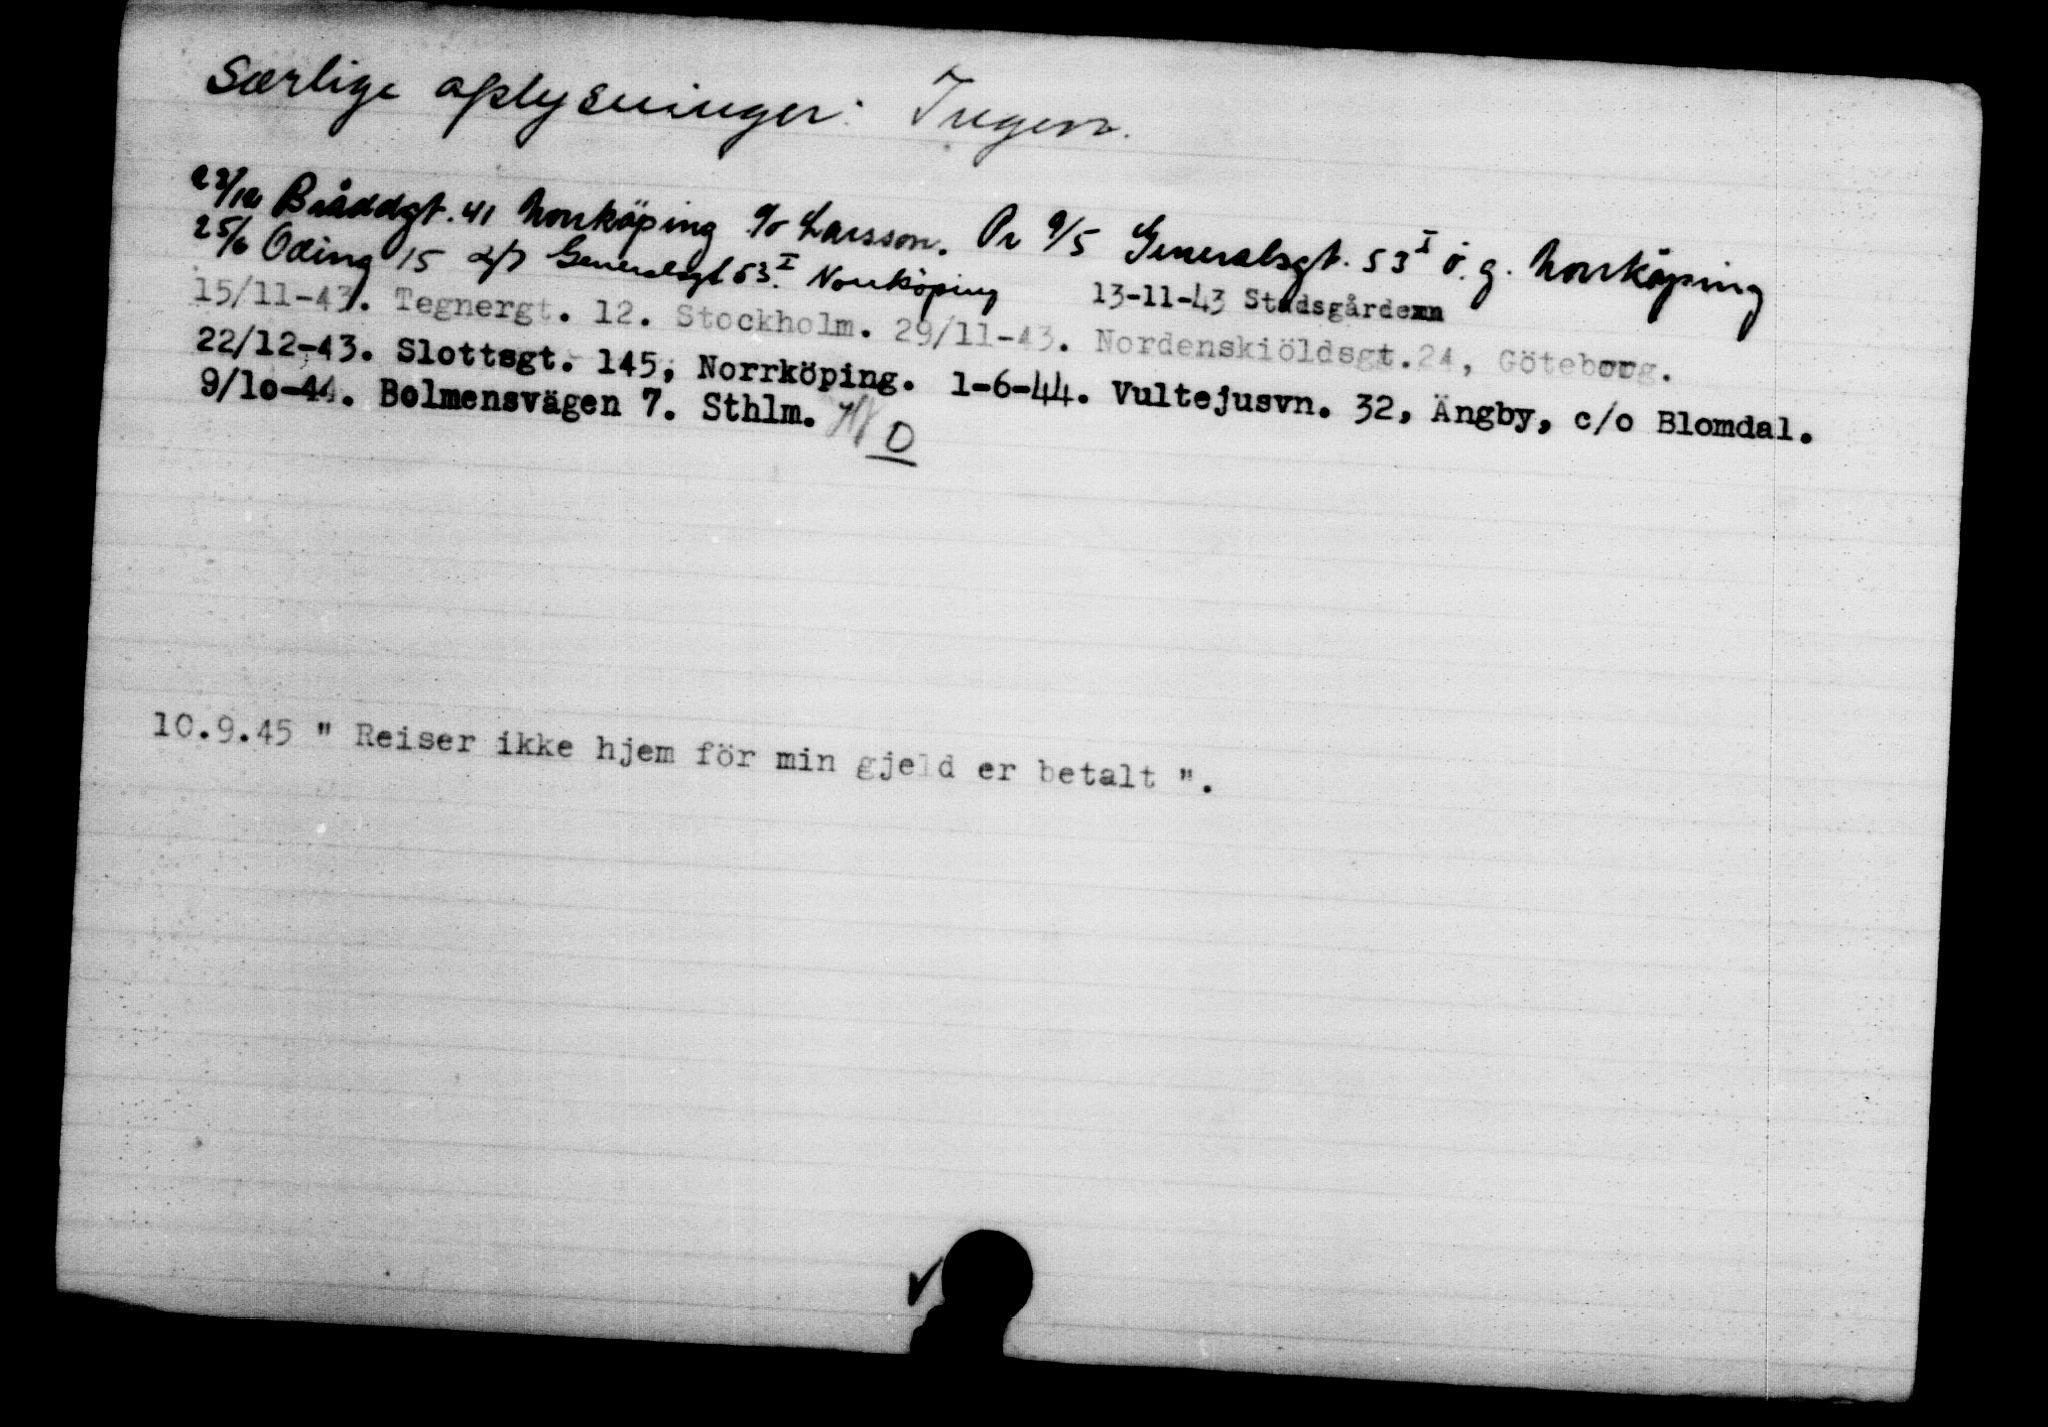 Særlige oplysninger: Ingen.
23/12 Bråddgt. 41 Norrköping c/o Larsson. Pr 9/5 Generalsgt. 53 I ö.g. Norrköping
25/6 Oding 15 Generalsgt 53 I Norrköping 13-11-43 Stadsgården
15/11-43. Tegnergt. 12. Stockholm. 29/11-43. Nordenskiöldsgt.24, Göteborg.
22/12-43. Slottsgt. 145, Norrköping. 1-6-44. Vultejusvn. 32, Ängby, c/o Blomdal.
9/10-44. Bolmensvägen 7. Sthlm. D
10.9.45 " Reiser ikke hjem för min gjeld er betalt ".